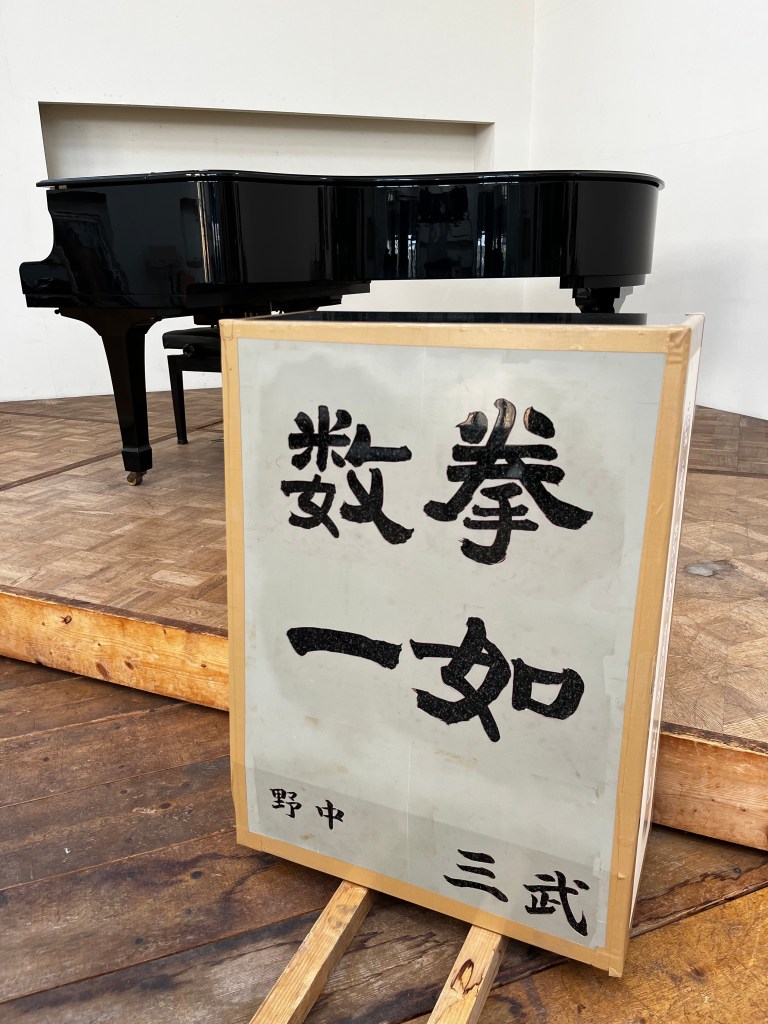 数拳
一如
野中
三武